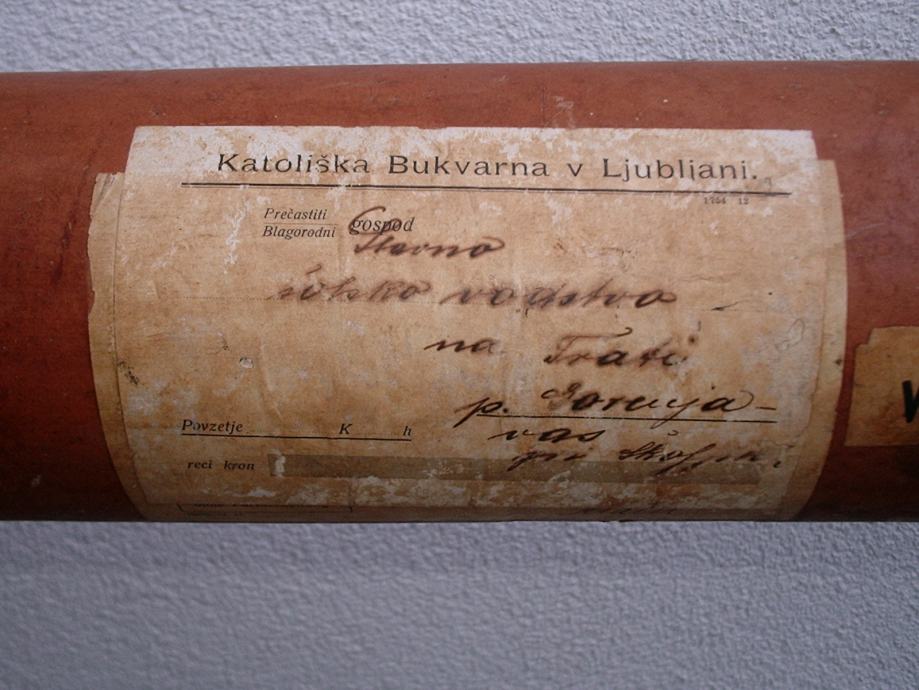 Katoliška Bukvarna v Ljubljani.
1754 12
Prečastiti
Blagorodni gospod
Slavno
šolsko vodstvo
na Trati
p. Gorenja-
vas
Povzetje K h
pri Škofji
reci kron